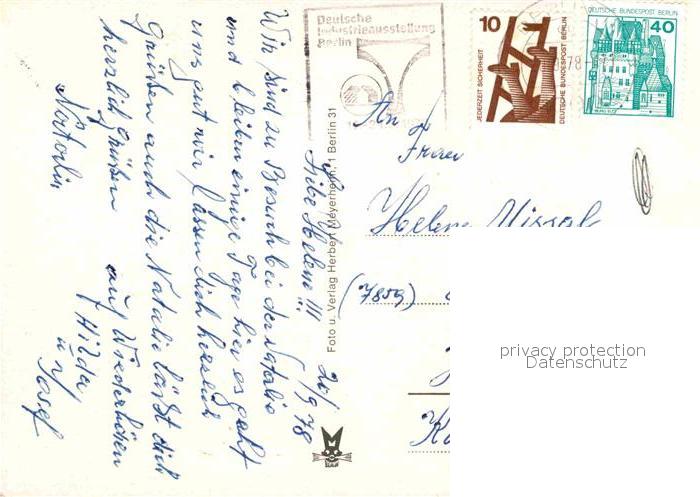 Deutsche
Industrieausstellung
Berlin
10
JEDERZEIT SICHERHEIT
DEUTSCHE BUNDESPOST BERLIN
DEUTSCHE BUNDESPOST BERLIN
40
An
Frau
Helene Missal
(7859)
privacy protection
Datenschutz
Foto u. Verlag Herbert Meyerheim, 1 Berlin 31
20/9 78
Libe Helene !!!
Wir sind zu Besuch bei der Natalie
und bleiben einige Tage hier es geht
uns gut wir lassen dich herzlich
Grüßen auch die Natalie läßt dich
herzlich grüßen auf Wiedersehen
Hilda
u. Josef